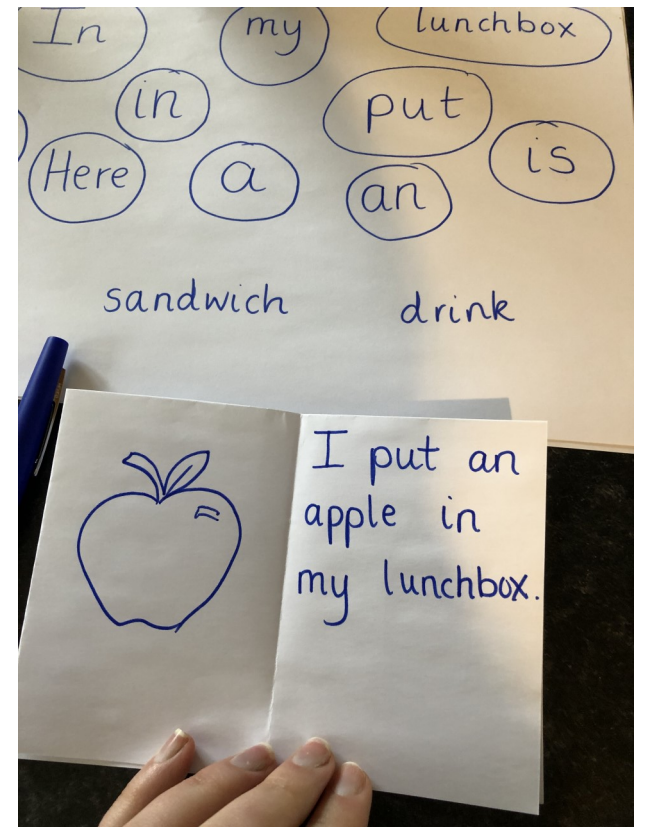 In my lunchbox
in put
Here a an is
sandwich drink
I put an
apple in
my lunchbox.